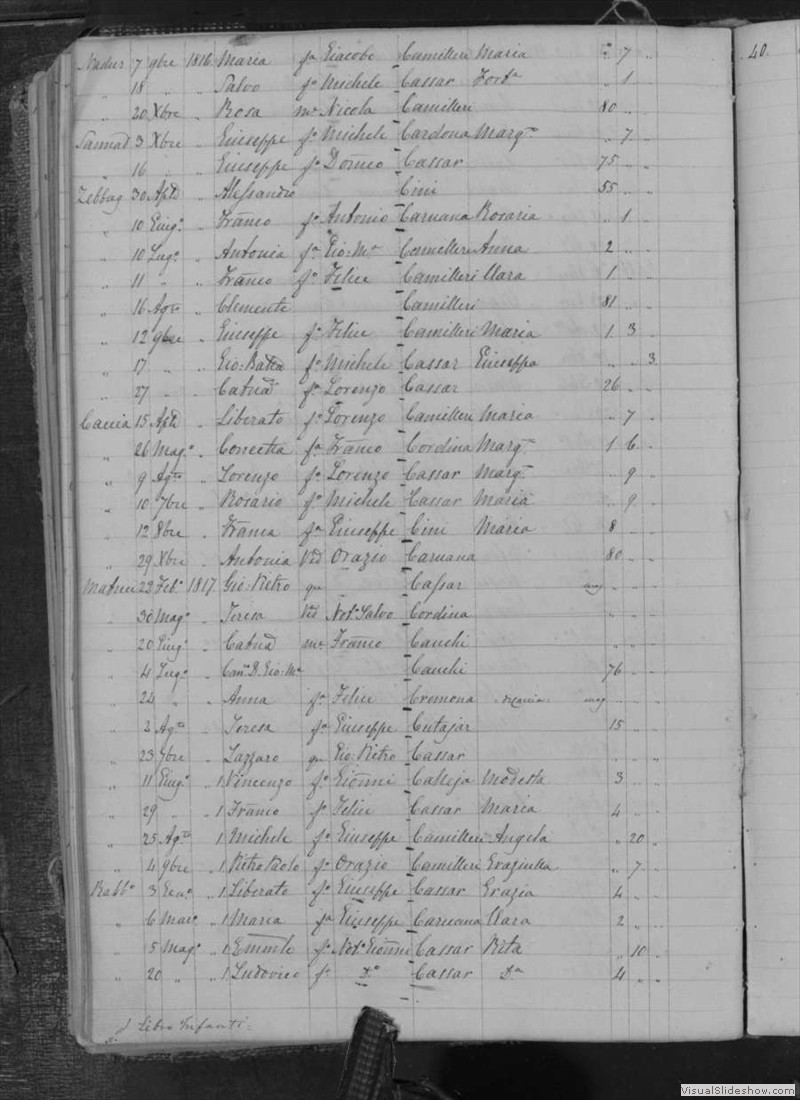 40.
Nadur 7 9bre 1816 Maria fa Giacobo Camilleri Maria " 7 "
" 18 " " Salvo fo Michele Cassar Forta " 1
" 20 Xbre " Rosa me Nicola Camilleri 80 " "
Sannat 3 Xbre " Giuseppe fo Michele Cardona Marga " 7 "
" 16 " " Giuseppe fo Domco Cassar 75 " "
Zebbug 30 Aple Alessandro Cini 55 " "
" 10 Giugo " Franco fo Antonio Caruana Rosaria " 1 "
" 10 Lugo " Antonia fa Gio: Ma Camilleri Anna 2 " "
" 11 " " Franco fo Felice Camilleri Clara 1 " "
" 16 Agto " Clemente Camilleri 81 " "
" 12 9bre " Giuseppe fo Felice Camilleri Maria 1 3 "
" 17 " " Gio: Batta fo Michele Cassar Giuseppa " " 3
" 27 " " Catna fa Lorenzo Cassar 26 " "
Caccia 15 Aple " Liberato fo Lorenzo Camilleri Maria " 7 "
" 26 Mago " Concetta fa Franco Cordina Marga 1 6 "
" 9 Agto " Lorenzo fo Lorenzo Cassar Marga " 9 "
" 10 7bre " Rosario fo Michele Cassar Maria " 9 "
" 12 8bre " Franca fa Giuseppe Cini Maria 8 " "
" 29 Xbre " Antonia Ved Orazio Caruana 80 " "
Matrice 22 Febo 1817 Gio: Pietro qm Cassar mag " "
" 30 Mago " Teresa Ved Noto Salvo Cordina " " "
" 20 Giugo " Catna me Franco Cauchi " " "
" 4 Lugo " Cano D. Gio: Ma Cauchi 76 " "
" 24 " " Anna fa Felice Cremona mag " "
" 2 Agto " Teresa fa Giuseppe Cutajar 15 " "
" 23 7bre " Lazzaro qm Gio: Pietro Cassar " " "
" 11 Giugo " 1 Vincenzo fo Gionni Calleja Modesta 3 " "
" 29 " " 1 Franco fo Felice Cassar Maria 4 " "
" 25 Agto " 1 Michele fo Giuseppe Camilleri Angela " 20 "
" 4 9bre " 1 Pietro Paolo fo Orazio Camilleri Graziulla " 7 "
Rabbo 3 Geno " 1 Liberato fo Giuseppe Cassar Grazia 4 " "
" 6 Maro " 1 Maria fa Giuseppe Caruana Clara 2 " "
" 5 Mago " 1 Emmle fo Noto Gionni Cassar Rita " 10 "
" 20 " " 1 Ludovico fo Do Cassar Da 4 " "
Libro Infanti.
VisualSlideshow.com